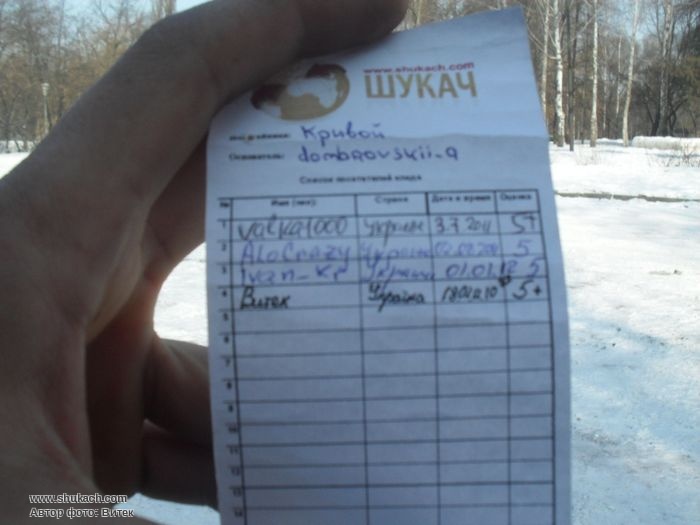 www.shukach.com
ШУКАЧ
Кривой
Основатель: dombrovskii-a
Список посетителей клада
№ Имя (ник) Страна Дата и время Оценка
1 valka1000 Україна 3.7.2011 5+
2 AloCrazy Україна 5
3 ivan_kr Україна 01.01.12 5
4 Витек Україна 5+
5
6
7
8
9
10
11
12
13
14
www.shukach.com
Автор фото: Витек